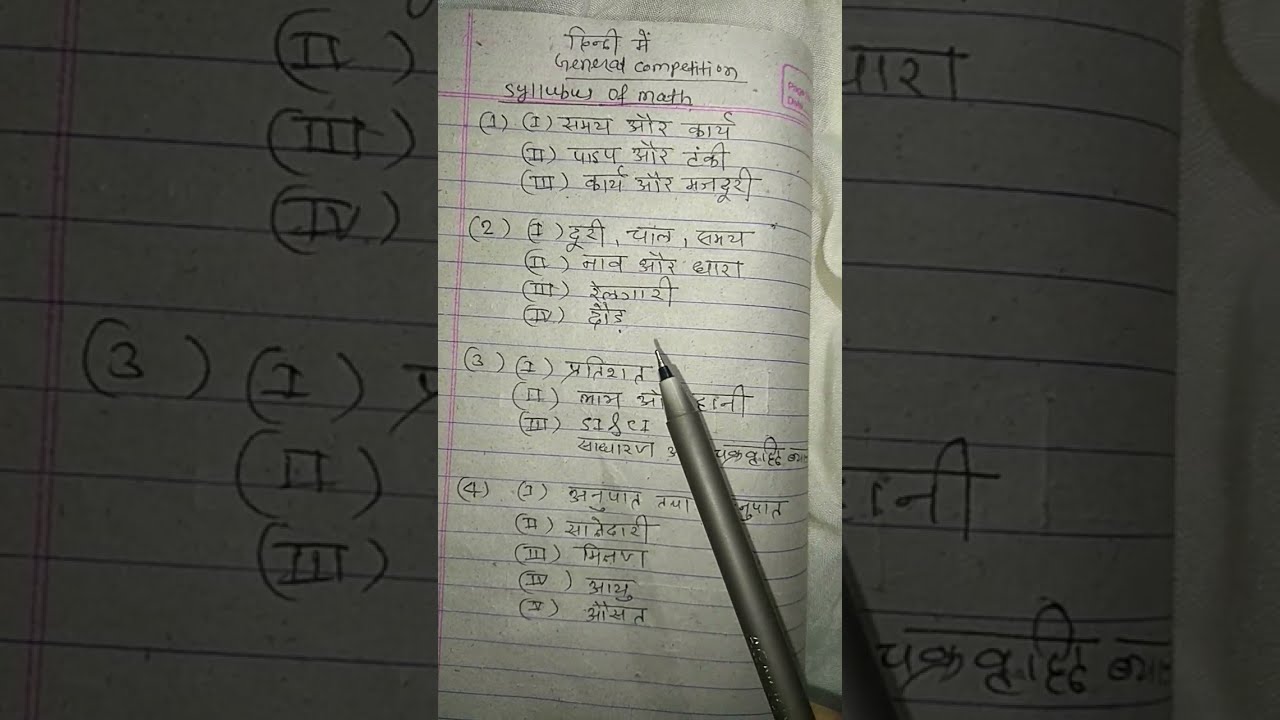 हिन्दी में
General competition
Syllubus of math
(1) (I) समय और कार्य
(II) पाइप और टंकी
(III) कार्य और मजदूरी
(2) (I) दूरी, चाल, समय
(II) नाव और धारा
(III) रेलगारी
(IV) दौड़
(3) (I) प्रतिशत
(II) लाभ और हानी
(III) SI & CI
साधारण चक्रवृद्धि
(4) (I) अनुपात तथा
(II) साझेदारी
(III) मिश्रण
(IV) आयु
(V) औसत